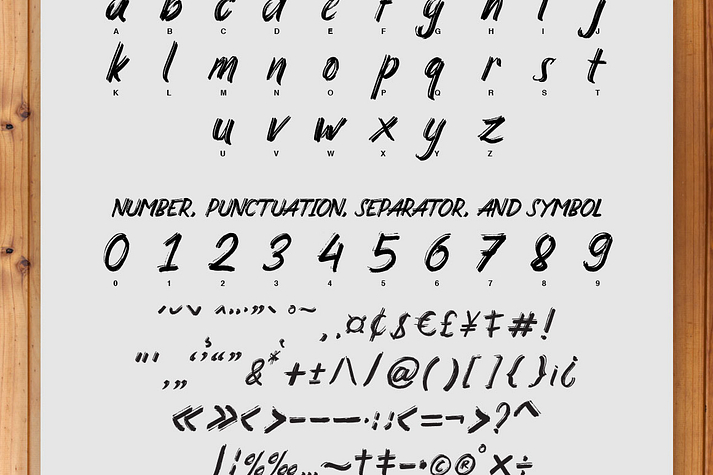 a b c d e f g h i j
A B C D E F G H I J
k l m n o p q r s t
K L M N O P Q R S T
u v w x y z
U V W X Y Z
NUMBER, PUNCTUATION, SEPARATOR, AND SYMBOL
0 1 2 3 4 5 6 7 8 9
0 1 2 3 4 5 6 7 8 9
¤ ¢ $ € £ ¥ ‡ # !
& * + ± / \ / @ ( ) [ ] { } ¡ ¿
« » < > - – — · : ; < = ¬ > ? ^
| ¦ % ‰ … ~ † ‡ - • © ® ° × ÷